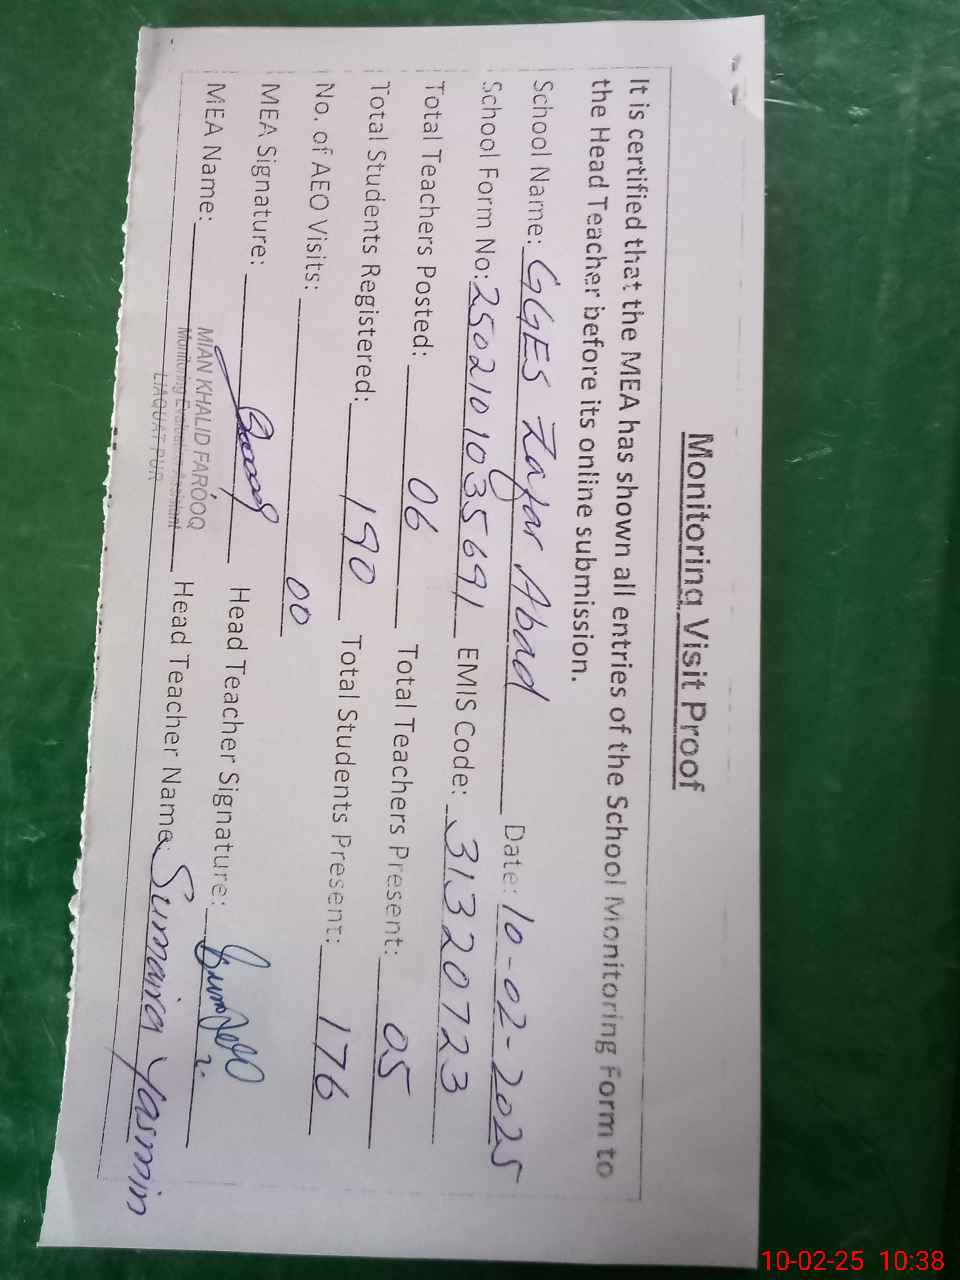 Monitoring Visit Proof
It is certified that the MEA has shown all entries of the School Monitoring Form to
the Head Teacher before its online submission.
School Name: GGES Zafar Abad Date: 10-02-2025
School Form No: 2502101035691 EMIS Code: 31320723
Total Teachers Posted: 06 Total Teachers Present: 05
Total Students Registered: 190 Total Students Present: 176
No. of AEO Visits: 00
MEA Signature: Head Teacher Signature:
MEA Name: MIAN KHALID FAROOQ Head Teacher Name: Sumaira Yasmin
Monitoring Evaluation Assistant
LIAQUATPUR
10-02-25 10:38